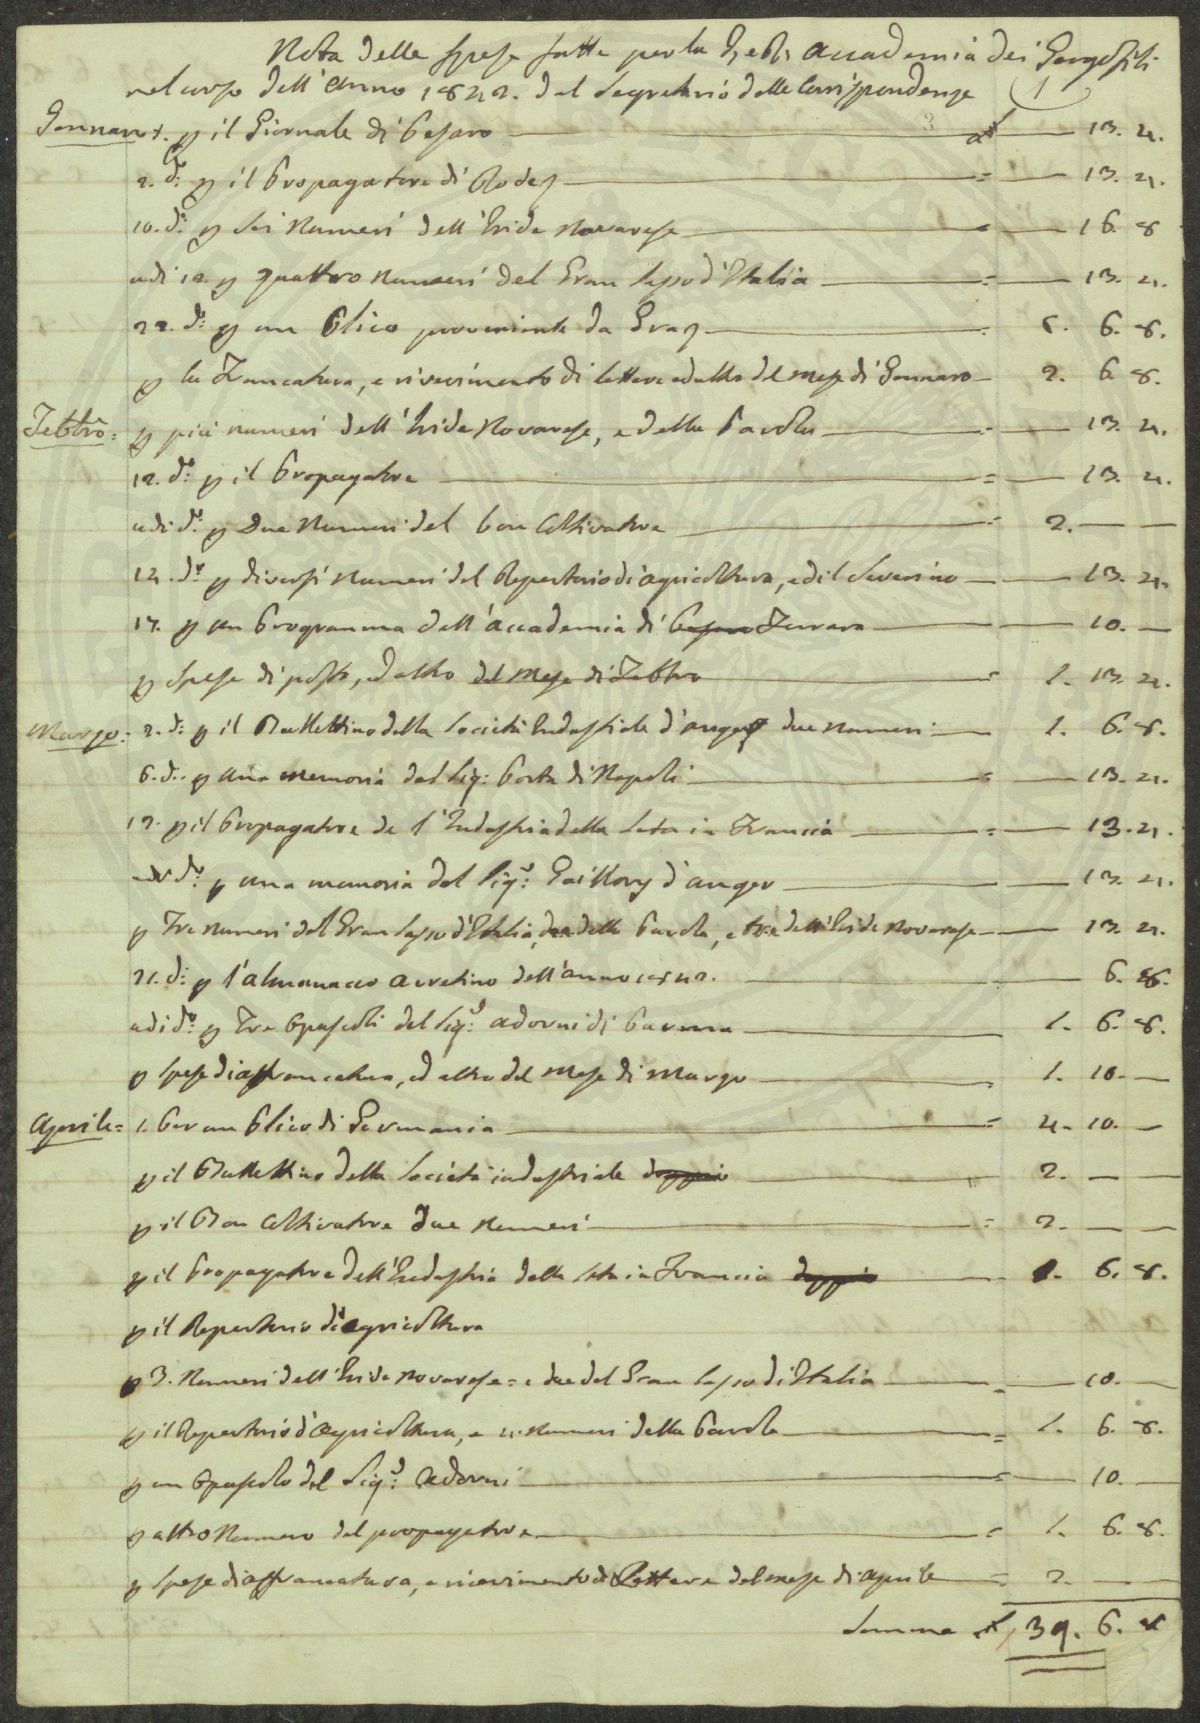 Nota delle Spese fatte per la Accademia dei Georgofili
nel corso dell'Anno 1842. dal Segretario delle Corrispondenze
1
Gennaro 1. p il Giornale di Pesaro 13. 4.
2. do: p il Propagatore di Rodez = 13. 4.
10. do: p sei Numeri dell'Iride Novarese = 16. 8
adi 12. p quattro Numeri del Gran Sasso d'Italia = 13. 4.
22. do: p un Plico proveniente da Graz 6. 8.
p la Francatura, e ricevimento di lettere ed altro del Mese di Gennaro 2. 6. 8.
Febbro: p più numeri dell'Iride Novarese, e della Parola 13. 4.
12. do: p il Propagatore = 13. 4.
adi do: p Due Numeri del bon Coltivatore = 2. — —
12. do: p diversi Numeri del Repertorio di agricoltura, ed il Severino 13. 4.
17. p un Programma dell'Accademia di Pesaro Ferrara 10. —
p Spese di posta, ed altro del Mese di Febbro = 1. 13. 4.
Marzo: 2. do: p il Bullettino della Società Industriale d'Angers due numeri 1. 6. 8.
6. do: p una memoria del Sigr: Porta di Napoli = 13. 4.
12. p il Propagatore de l'Industria della Seta in Francia = 13. 4.
adi do: p una memoria del Sigr: d'Anger 13. 4.
p Tre numeri del Gran Sasso d'Italia, due della Parola, e tre dell'Iride Novarese 13. 4.
21. do: p l'almanacco aretino dell'anno 1842. 6. 8.
adi do: p Tre Opuscoli del Sigr: Adorni di Parma 1. 6. 8.
p Spese di affrancatura, ed altro del Mese di Marzo 1. 10. —
Aprile = 1. Per un Plico di Germania = 4. 10. —
p il Bullettino della Società industriale doppio 2. — —
p il Bon Coltivatore due Numeri = 2. — —
p il Propagatore dell'Industria della Seta in Francia doppio 1. 6. 8.
p il Repertorio di agricoltura
p 3. Numeri dell'Iride Novarese = e due del Gran Sasso d'Italia 10. —
p il Repertorio d'Agricoltura, e 4. Numeri della Parola = 1. 6. 8.
p un Opuscolo del Sigr: Adorni = 10. —
p altro Numero del propagatore = 1. 6. 8.
p Spese di affrancatura, e ricevimento di Lettere del mese di aprile = 2. — —
Somma 39. 6. 8